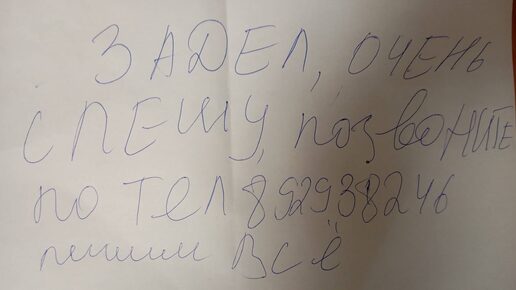 ЗАДЕЛ, ОЧЕНЬ
СПЕШУ, ПОЗВОНИТЕ
ПО ТЕЛ 892938246
ВСЁ